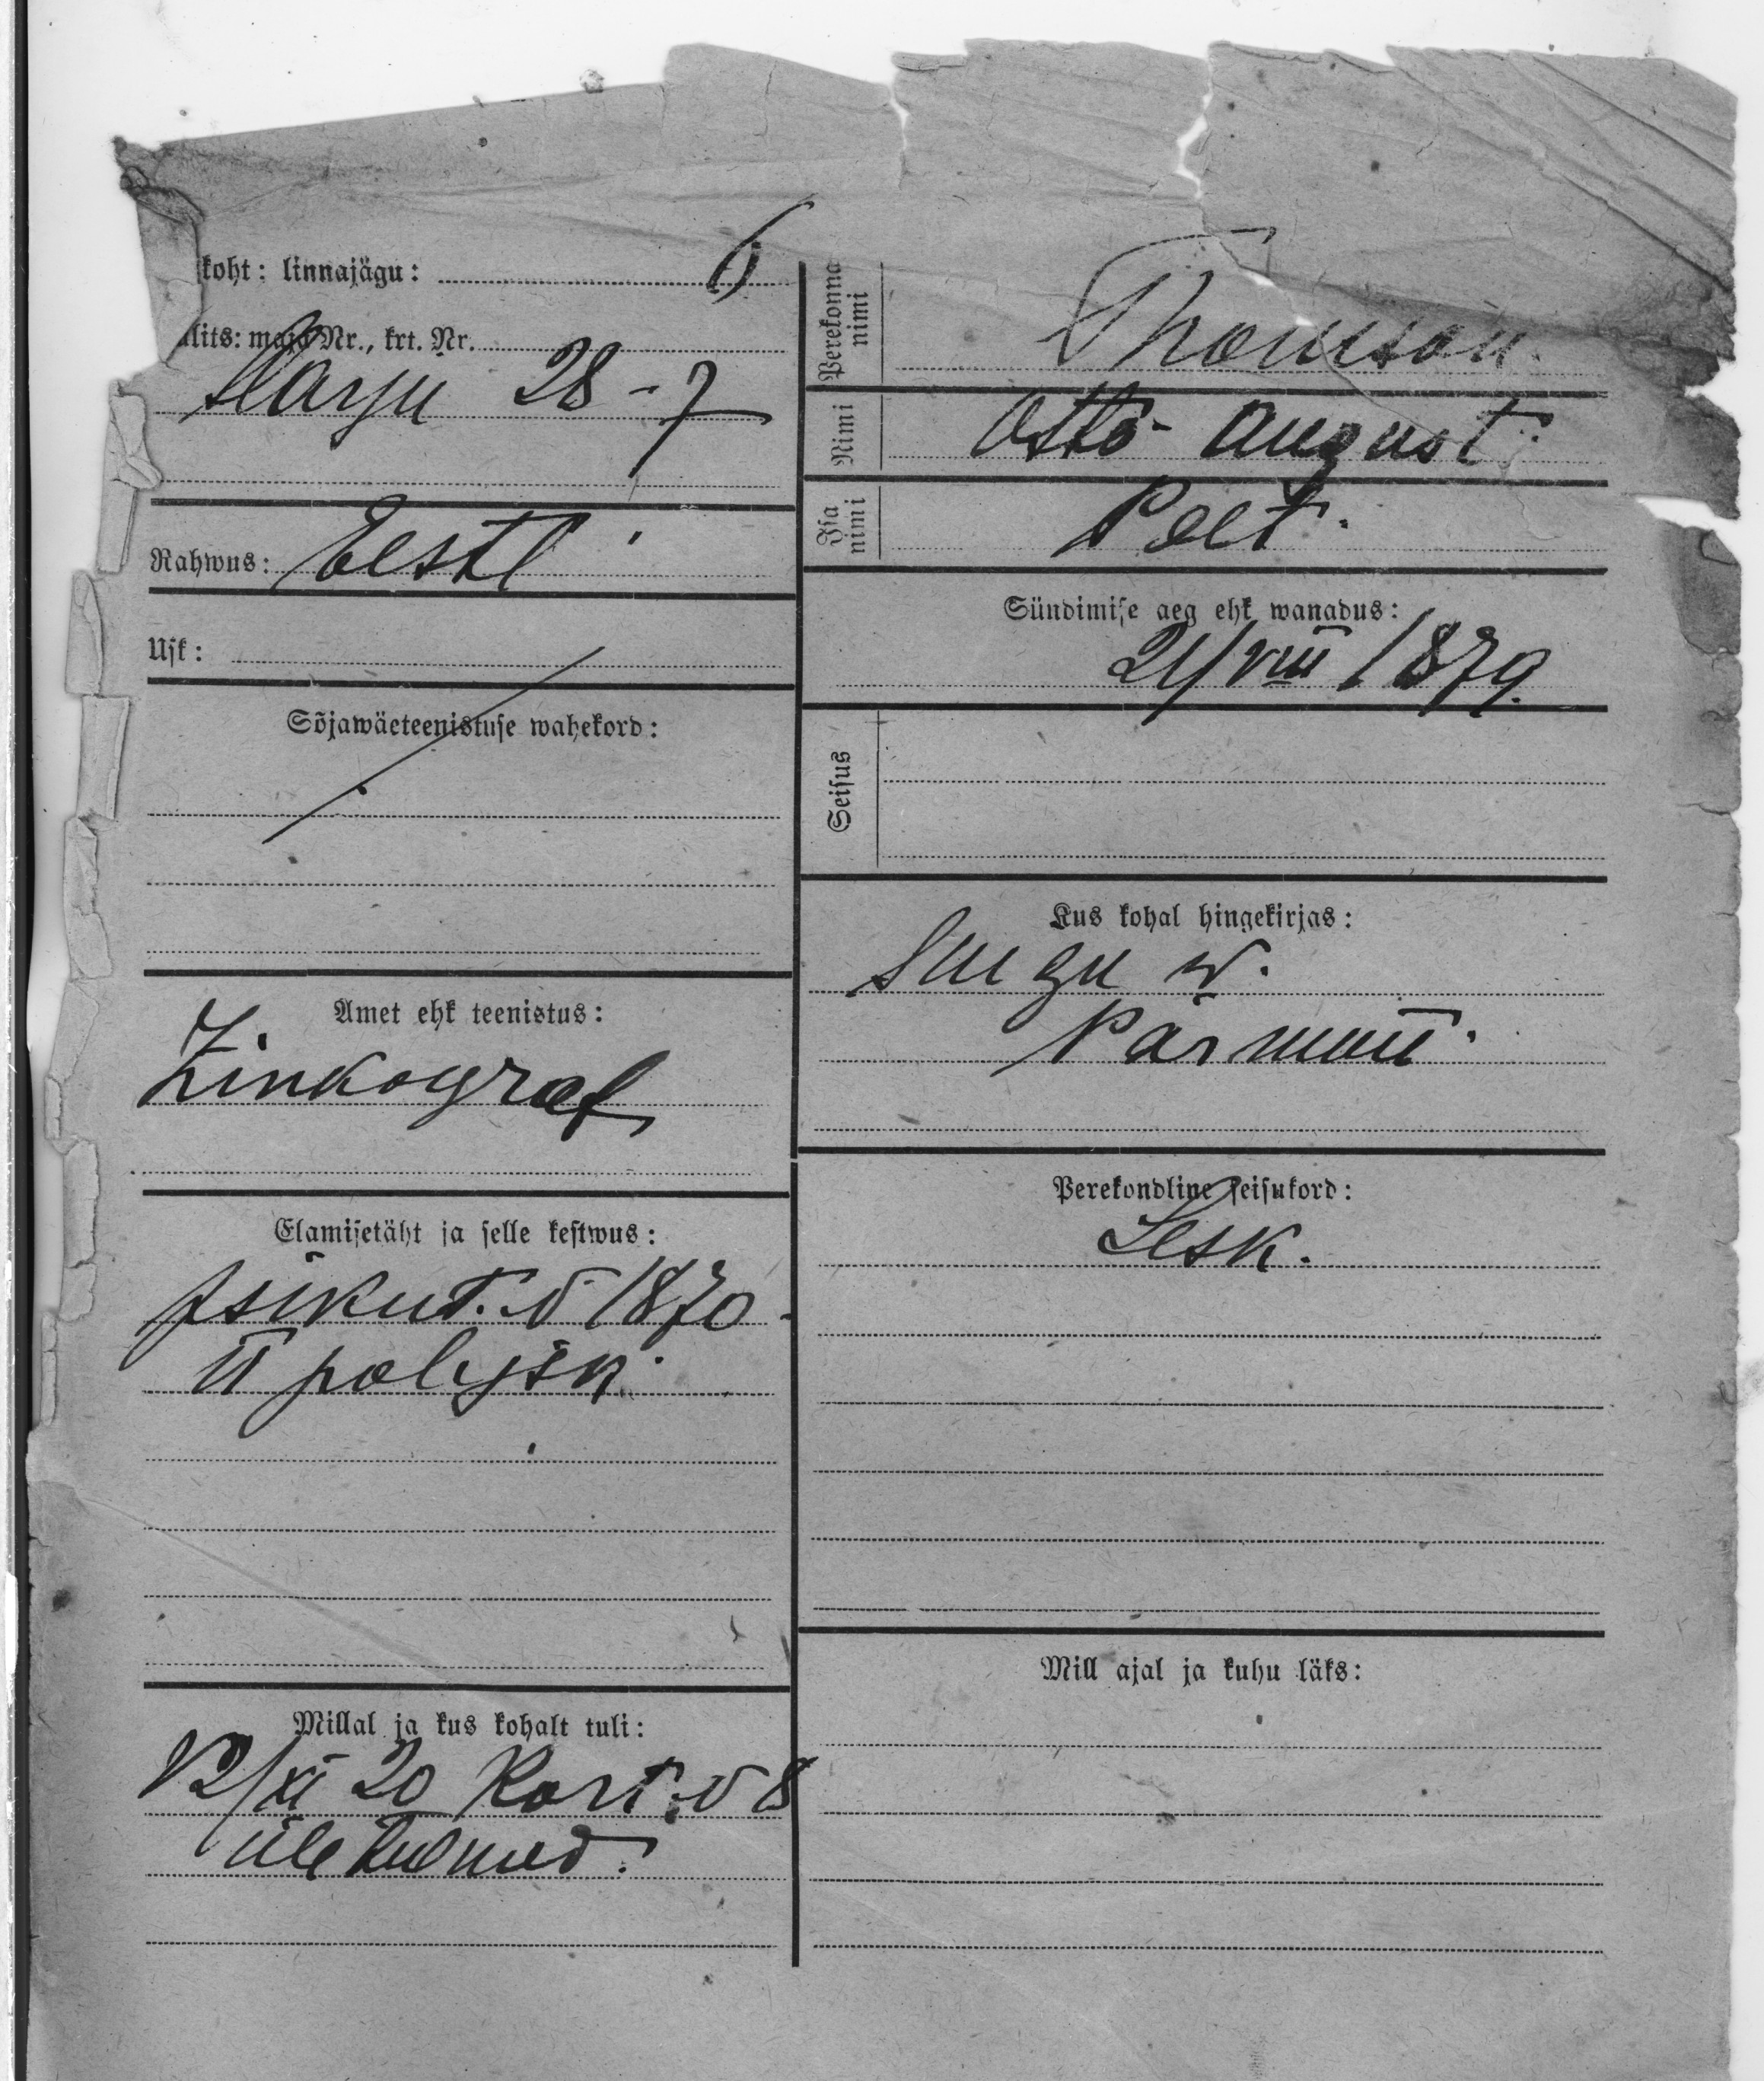 koht: linnajägu: 6
lits: maja Nr., krt. Nr.
Harju 28-7
Rahwus: Eesti
Usk:
Sõjawäeteenistuse wahekord:
Amet ehk teenistus:
Zinkograf
Elamisetäht ja selle kestwus:
Isikut. № 1870
II pol. jsk.
Millal ja kus kohalt tuli:
12/XI 20 Kort. № 8
üle tulnud.
Perekonna nimi Thomson.
Nimi Otto-August.
Isa nimi Peet.
Sündimise aeg ehk wanadus:
21/VIII 1879.
Seisus
Kus kohal hingekirjas:
w.
Pärnu
Perekondline seisukord:
Lesk.
Mill ajal ja kuhu läks: